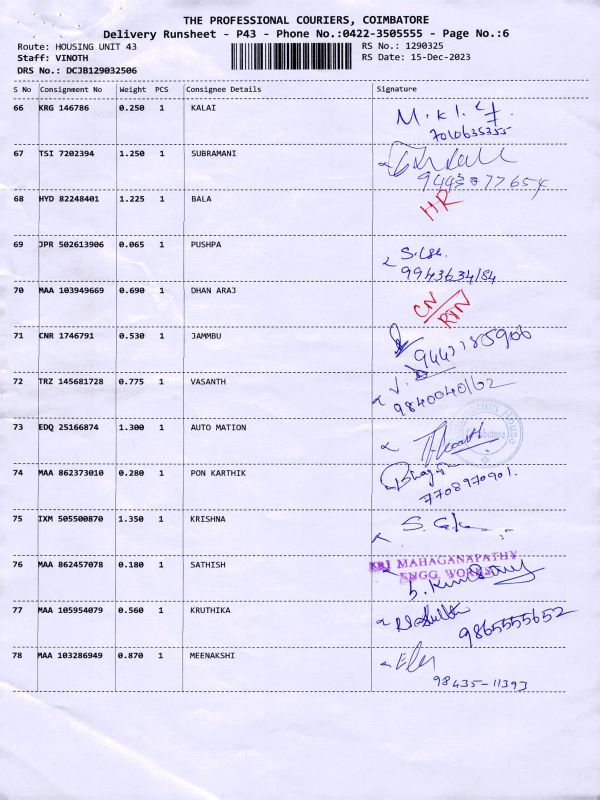 THE PROFESSIONAL COURIERS, COIMBATORE
Delivery Runsheet - P43 - Phone No.:0422-3505555 - Page No.:6
Route: HOUSING UNIT 43 RS No.: 1290325
Staff: VINOTH RS Date: 15-Dec-2023
DRS No.: DCJB129032506
S No Consignment No Weight PCS Consignee Details Signature
66 KRG 146786 0.250 1 KALAI
7010635355
67 TSI 7202394 1.250 1 SUBRAMANI
68 HYD 82248401 1.225 1 BALA HR
69 JPR 502613906 0.065 1 PUSHPA
9943634184
70 MAA 103949669 0.690 1 DHAN ARAJ CN
RTN
71 CNR 1746791 0.530 1 JAMMBU
72 TRZ 145681728 0.775 1 VASANTH
9840040162
73 EDQ 25166874 1.300 1 AUTO MATION
74 MAA 862373010 0.280 1 PON KARTHIK
7708970901.
75 IXM 505500870 1.350 1 KRISHNA
76 MAA 862457078 0.180 1 SATHISH SRI MAHAGANAPATHY
ENGG. WORKS
77 MAA 105954079 0.560 1 KRUTHIKA
9865555652
78 MAA 103286949 0.870 1 MEENAKSHI
98435-11393